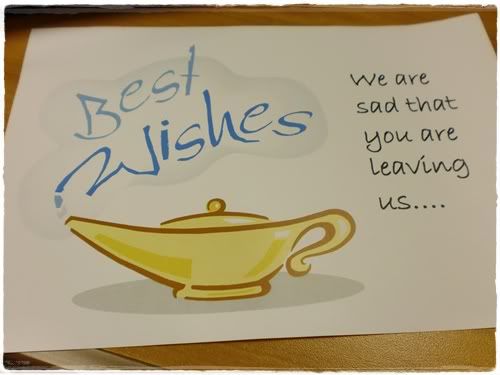 Best
Wishes
We are
sad that
you are
leaving
us....